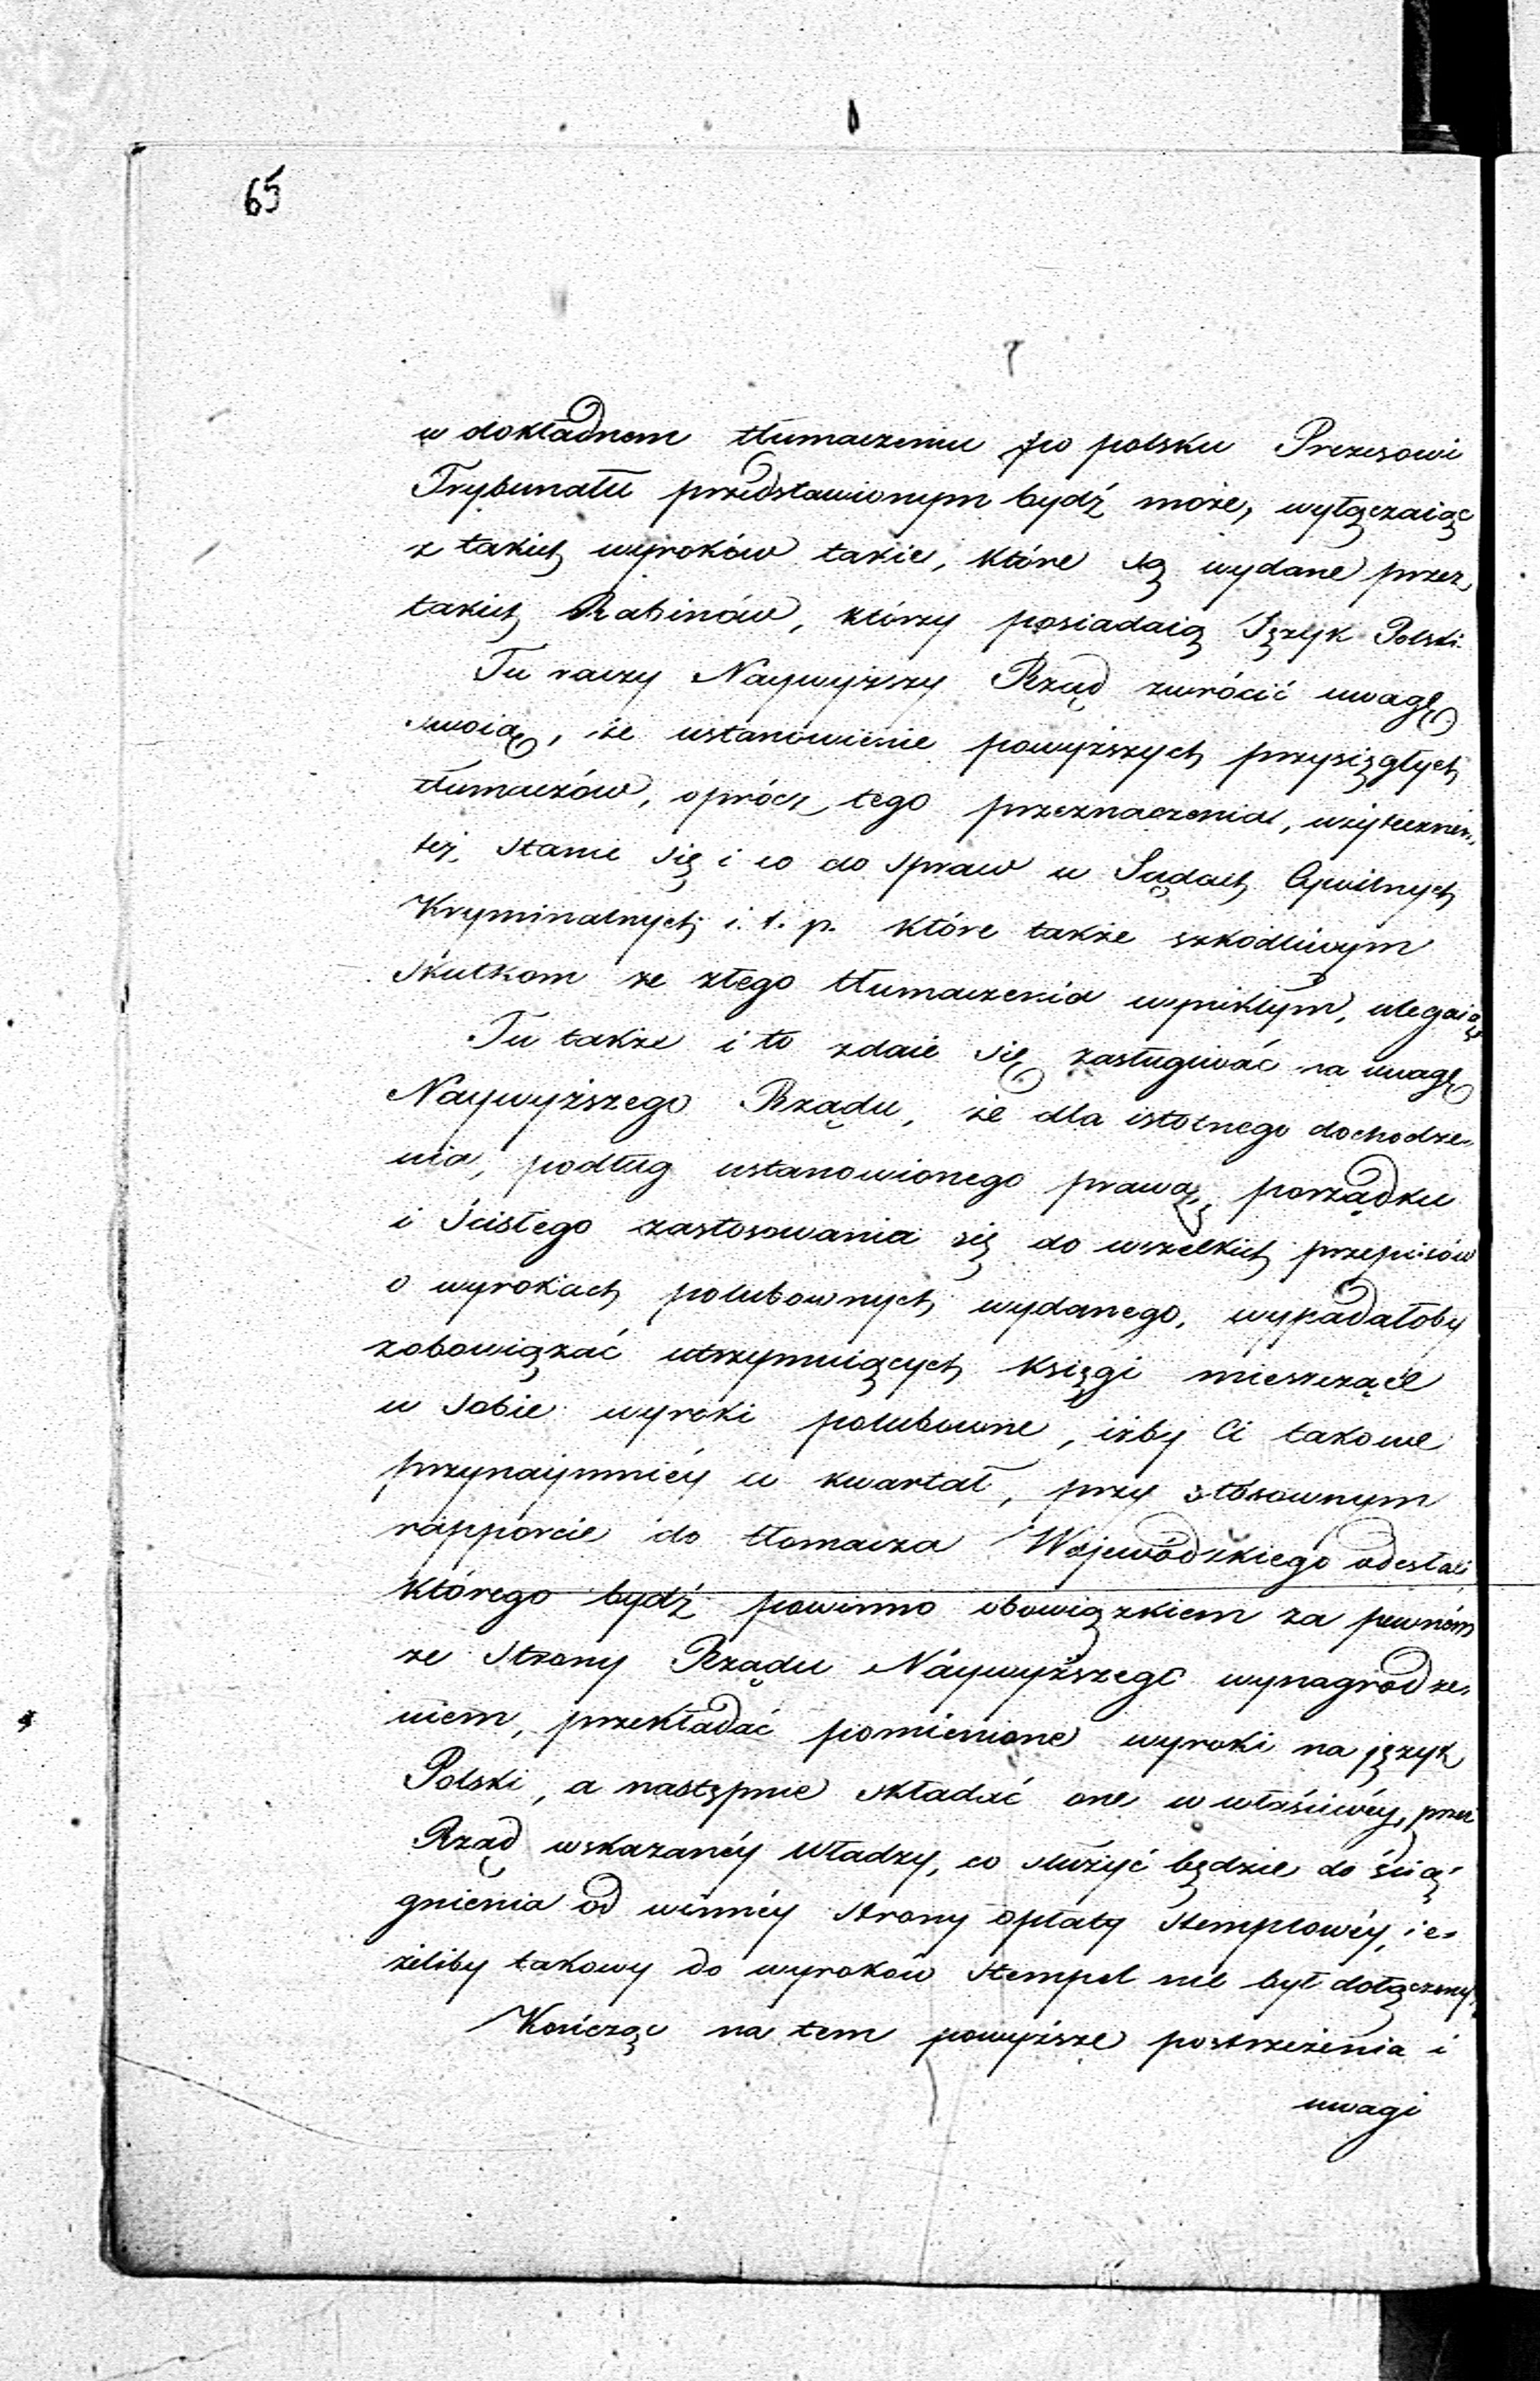 65
w dokładnem tłumaczeniu po polsku Prezesowi
Trybunału przedstawionym bydź może, wyłączaiąc
z takich wyroków takie, które są wydane przez
takich Rabinów, którzy posiadaią Język Polski.
Tu raczy Naywyższy Rząd zwrócić uwagę
swoię, że ustanowienie powyższych przysięgłych
tłumaczów, oprócz tego przeznaczenia, użyteczniey,
też, stanie się i co do spraw w Sądach Cywilnych
Kryminalnych i. t. p. które także szkodliwym
skutkom ze złego tłumaczenia wynikłym, ulegaią
Tu także i to zdaie się zasługiwać na uwagę
Naywyższego Rządu, że dla istotnego dochodze-
nia, podług ustanowionego prawa, porządku
i ścisłego zastosowania się do wszelkich przepisów
o wyrokach polubownych wydanego, wypadałoby
zobowiązać utrzymuiących Księgi mieszczące
w sobie wyroki polubowne, iżby Ci takowe
przynaymniéy w kwartał, przy stósownym
rapporcie do tłomacza Wojewódzkiego odesłali
którego bydź powinno obowiązkiem za pewném
ze Strony Rządu Náywyższego wynagrodze-
niem, przekładać pomienione wyroki na język
Polski, a następnie składać one w właściwéy, przez
Rząd wskazanéy Władzy, co służyć będzie do ścią-
gnienia od winnéy strony opłaty Stemplowéy, ie-
żeliby takowy do wyroków Stempel nie był dołączony.
Kończąc na tem powyższe postrzeżenia i
uwagi